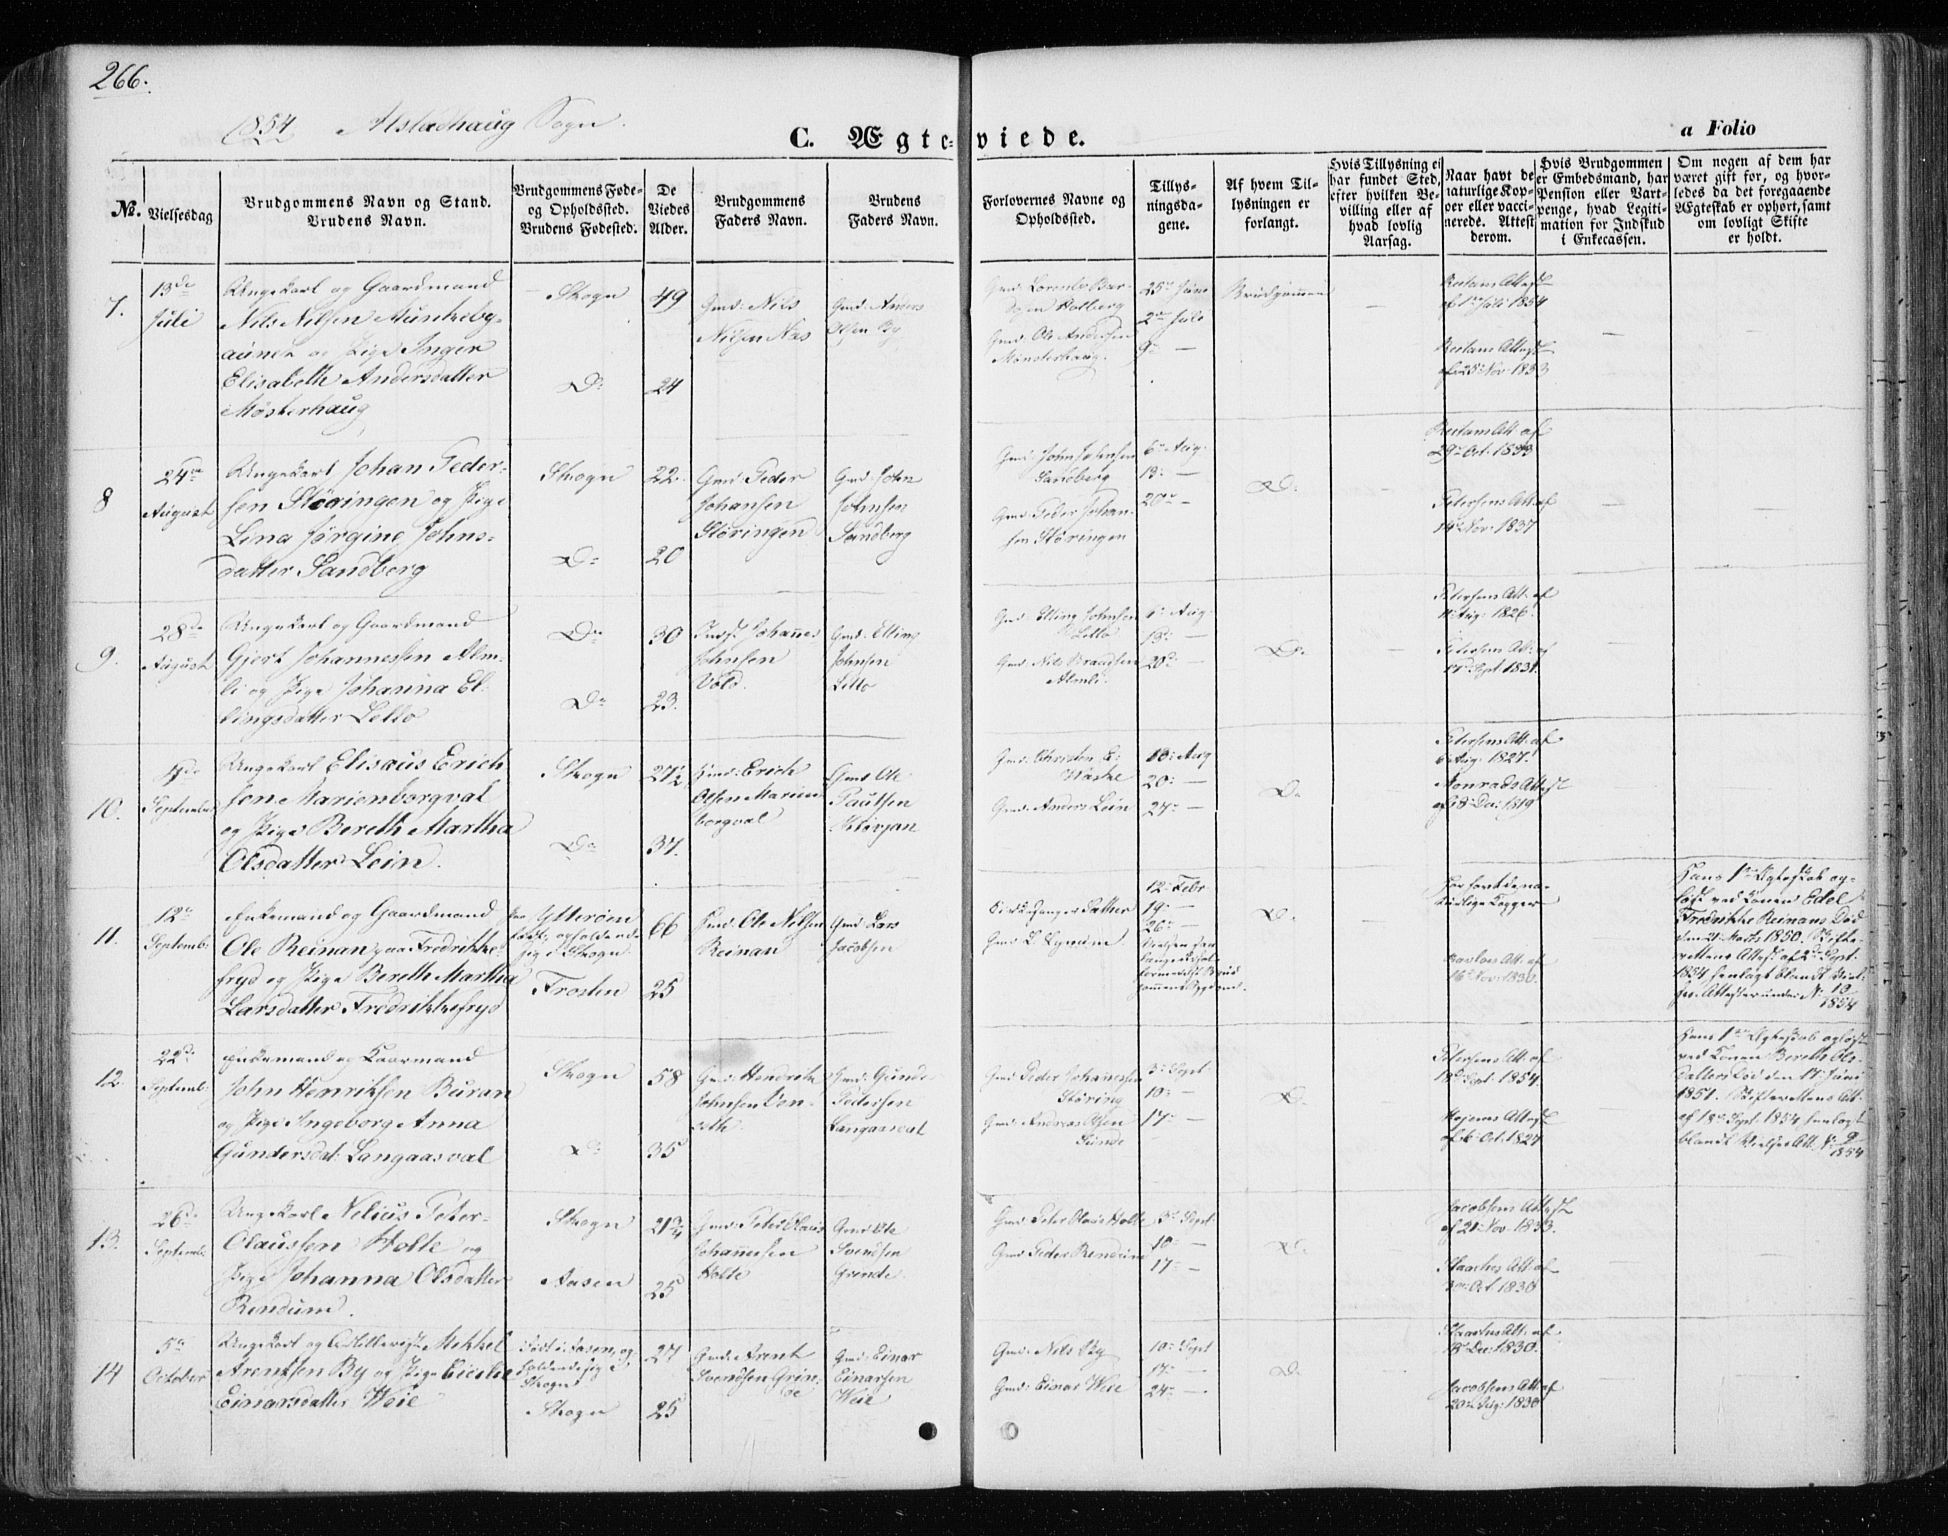 266.
1854 Alstadhaug Sogn.
C. Ægteviede.
a Folio
No.
Vielsesdag
Brudgommens Navn og Stand.
Brudens Navn.
Brudgommens Føde-
og Opholdssted.
Brudens Fødested.
De
Viedes
Alder.
Brudgommens
Faders Navn.
Brudens
Faders Navn.
Forlovernes Navne og
Opholdssted.
Tillys-
ningsda-
gene.
Af hvem Til-
lysningen er
forlangt.
Hvis Tillysning ei
har fundet Sted,
efter hvilken Be-
villing eller af
hvad lovlig
Aarsag.
Naar havt de
naturlige Kop-
per eller vacci-
nerede. Attest
derom.
Hvis Brudgommen
er Embedsmand, har
Pension eller Vart-
penge, hvad Legiti-
mation for Indskud
i Enkecassen.
Om nogen af dem har
været gift før, og hvor-
ledes da det foregaaende
Ægteskab er ophørt, samt
om lovligt Skifte
er holdt.
7.
13de
Juli
Ungekarl og Gaardmand
Nils Nilsen Aunkeby-
aunen og Pige Inger
Elisabeth Andersdatter
Møsterhaug
Skogn
Do
49
24
Gmd: Nils
Nilsen Nas
Gmd: Anders
Olsen By
Gmd: Ole Andersen
Mønsterhaug.
25de Juni
2den Juli
9de —
Brudgommen
af 1ste Juli 1854
af 28 Nov. 1833
8
24de
August
Ungekarl Johan Peder-
sen Støringen og Pige
Lina Jørgine Johns-
datter Sandberg
Skogn
Do
22.
20
Gmd: Peder
Johansen
Støringen
Gmd: John
Johnsen
Sandberg
Gmd: John Johnsen
Sandberg
Gmd: Peder Johan-
sen Støringen
6te Aug.
13: —
20de —
Do
29de Oct. 1833
Petersens Att. af
14de Nov. 1837
9.
28de
August
Ungekarl og Gaardmand
Gjert Johannessen Alm-
li og Pige Johanna El-
lingsdatter Lello
Do
Do
30
23.
Johannes
Johnsen
Vold.
Gmd: Elling
Johnsen
Lello
Gmd: Elling Johnsen
Lello
Gmd: Nils Brandsen
Almli.
6te Aug.
13: —
20de —
Do
Petersens Att. af
Aug. 1826.
Petersens Att. af
17de Sept. 1831.
10.
September
Ungekarl Elisæus Erich-
sen Marienborgval
og Pige Bereth Martha
Olsdatter Lein.
Skogn
Do
27½
37.
Erich
Olsen Marien-
borgval
Gmd: Ole
Paulsen
Gmd: Anders Lein
13: Aug
20: —
24: —
Do
Petersens Att. af
Aug. 1827.
Monrads Attest
af 8 Dec: 1819
11.
12te
Septemb:
Enkemand og Gaardmand
Ole Reinan paa Fredrikke-
fryd og Pige Bereth Martha
Larsdatter Fredrikkefryd
Ytterøen
født, opholdende
sig i Skogn
Frosten
66
25
Ole Nilsen
Reinan
Gmd: Lars
Jacobsen
Kirkesanger Sather
Gmd: L.
12: Febr
19: —
26: —
Do
Har havt de na-
turlige Kopper
Att. af
16 Nov. 1830.
Hans 1ste Ægteskab op-
løst ved Konen Edel
Fredrikke Reinans Død
den 21 Marts 1850. Skifte-
rettens Attest af 2de Sept.
1854 henlagt blandt Viel-
ses Attester under No 10
1854
12.
22de
Septemb:
Enkemand og Kaarmand
John Henriksen Buran
og Pige Ingeborg Anna
Gundersdat: Langaasval
Skogn
Do
58
35
Gmd: Hendrik
Johnsen
Gmd: Gunder
Pedersen
Langaasval
Gmd: Peder Johansen
Støring
Gmd: Andreas Olsen
Sunde
3: Sept.
10: —
17: —
Do
Petersens Att. af
18 Sept. 1854.
Højems Attest
af 6te Oct. 1827
Hans 1ste Ægteskab opløst
ved Konen Bereth Ols-
datters Død den 17 Juni
1851. Skifterettens Att.
af 18de Sept. 1854 henlagt
blandt Vielses Att. No 9
1854
13.
26de
Septemb:
Ungekarl Nelius Peter-
Claussen Holte og
Pige Johanna Olsdatter
Rendum.
Skogn
Aasen
21¾
25
Gmd: Peter Olaus
Johannesen
Holte
Gmd: Ole
Svendsen
Grende.
Gmd: Peter Olaus Holte
Gmd: Peder Rendum
3: Sept.
10: —
17: —
Do
Jacobsens Attest
af 21: Nov. 1833.
Att: af
Oct. 1830
14
5te
October
Ungekarl og Mekkel
Arentsen By og Pige
Einarsdatter Weie
født i Aasen, op-
holdende sig i
Skogn
Skogn
27
25
Gmd: Arent
Svendsen Grin-
de
Gmd: Einar
Einarsen
Weie
Gmd: Nils By
Gmd: Einar Weie
10: Sept
17: —
24: —
Do
Att. af
Dec: 1830.
Jacobsens Att. af
20de Aug. 1830